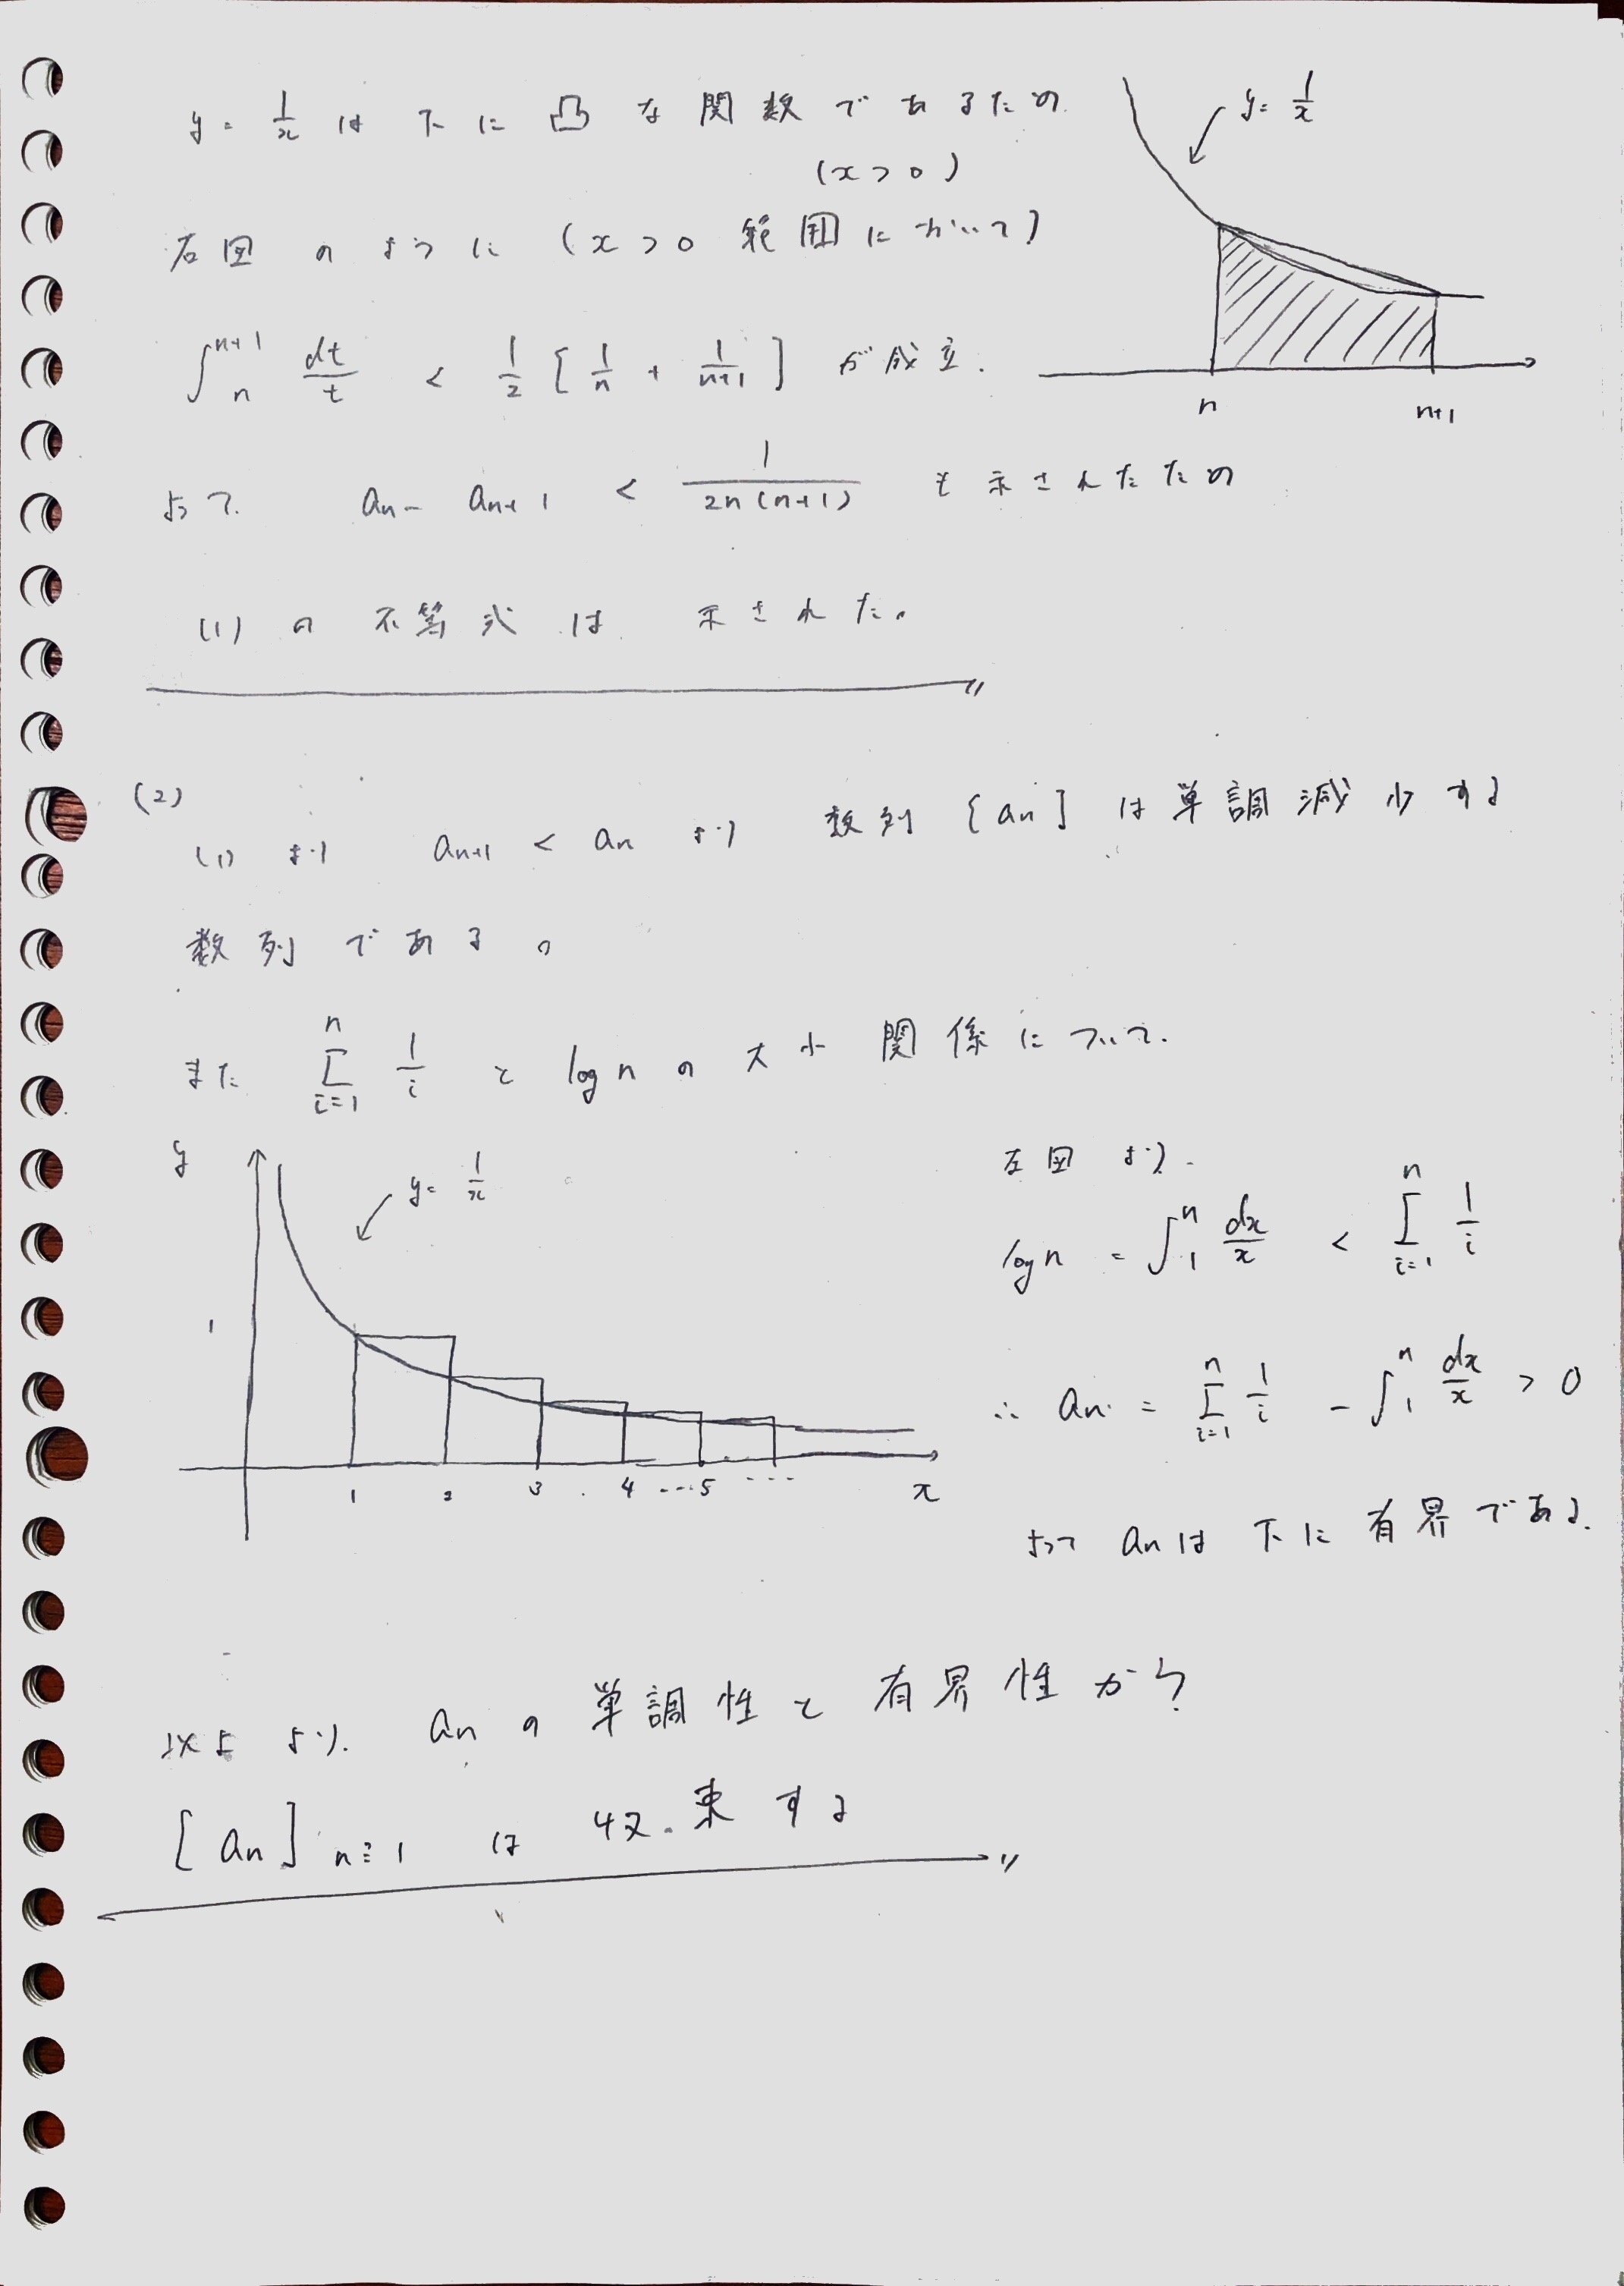 y = 1/x は 下に凸な関数であるため
(x > 0)
y = 1/x
右図のように (x > 0 範囲において)
∫_n^{n+1} dt/t < 1/2 [ 1/n + 1/(n+1) ] が成立.
n n+1
よって. a_n - a_{n+1} < 1/(2n(n+1)) も示されたため
(1) の不等式は 示された。
(2)
(1) より a_{n+1} < a_n より 数列 [a_n] は単調減少する
数列である。
また Σ_{i=1}^{n} 1/i と log n の大小関係について.
y
y = 1/x
1
1 2 3 4 ... 5 ...
x
左図より.
log n = ∫_1^n dx/x < Σ_{i=1}^{n} 1/i
∴ a_n = Σ_{i=1}^{n} 1/i - ∫_1^n dx/x > 0
よって a_n は下に有界である.
以上より. a_n の単調性と有界性から
[a_n]_{n≧1} は 収束する